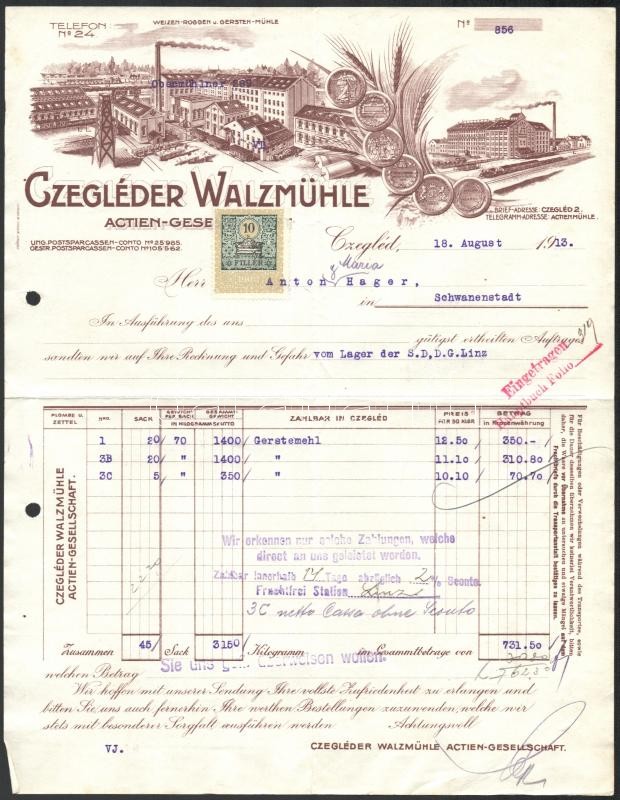 TELEFON
No 24
WEIZEN-ROGGEN u. GERSTEN-MÜHLE
No 856
VI.
CZEGLÉDER WALZMÜHLE
ACTIEN-GESE
10
FILLÉR
UNG. POSTSPARCASSEN-CONTO No 25985.
OESTR. POSTSPARCASSEN-CONTO No 105562.
BRIEF-ADRESSE: CZEGLÉD 2.
TELEGRAMM-ADRESSE: ACTIENMÜHLE.
Czegléd, 18. August 1913.
Maria
Herr Anton Hager,
in Schwanenstadt
In Ausführung des uns gütigst ertheilten Auftrages
sandten wir auf Ihre Rechnung und Gefahr vom Lager der S.D,D.G.Linz
Eingetragen
Folio
PLOMBE U. ZETTEL Nro. SACK GEWICHT PER SACK GESAMMT-GEWICHT IN KILOGRAMM BRUTTO ZAHLBAR IN CZEGLÉD PREIS FÜR 50 KLGR BETRAG in Kronenwährung
1 20 70 1400 Gerstemehl 12.50 350.-
3B 20 " 1400 " 11.10 310.80
3C 5 " 350 " 10.10 70.70
CZEGLÉDER WALZMÜHLE
ACTIEN-GESELLSCHAFT.
Wir erkennen nur solche Zahlungen, welche
direct an uns geleistet werden.
Zahlbar innerhalb 14 Tage abzüglich 2 % Sconto.
Frachtfrei Station Linz
3C netto Cassa ohne Sconto
Für Beschädigungen oder Verwechselungen während des Transportes, sowie
für die Dauer desselben übernehmen wir keinerlei Verantwortlichkeit, bitten
daher, die Waare vor Übernahme zu untersuchen und etwaige Mängel auf dem
Frachtbriefe durch die Transportanstalt bestätigen zu lassen.
Zusammen 45 Sack 3150 Kilogramm im Gesammtbetrage von 731.50
Sie uns gefl. überweisen wollen.
welchen Betrag
Wir hoffen mit unserer Sendung Ihre vollste Zufriedenheit zu erlangen und
bitten Sie uns auch fernerhin Ihre werthen Bestellungen zuzuwenden, welche wir
stets mit besonderer Sorgfalt ausführen werden Achtungsvoll
VJ. CZEGLÉDER WALZMÜHLE ACTIEN-GESELLSCHAFT.